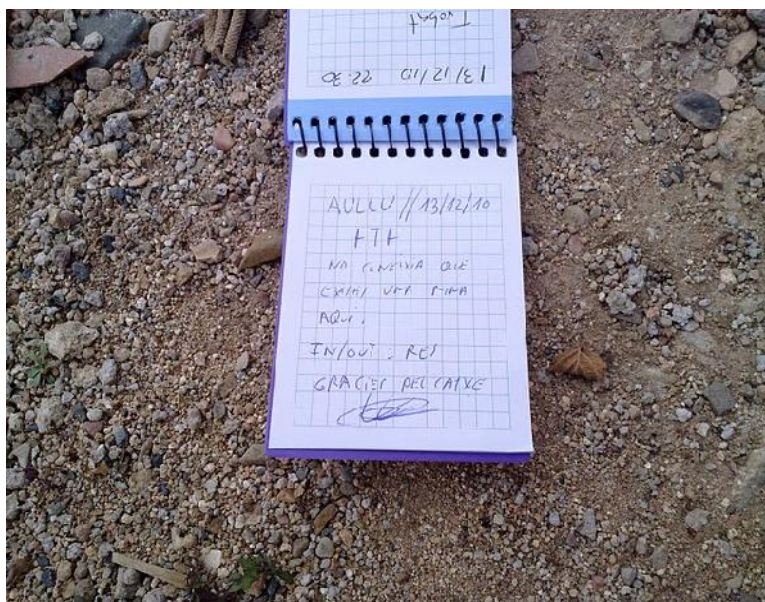 Trobat
13/12/10 22:30
AULLU // 13/12/10
FTF
NO CONEIXIA QUE
EXISTÍS UNA MINA
AQUI.
IN/OUT: RES
GRACIES PEL CAIXE